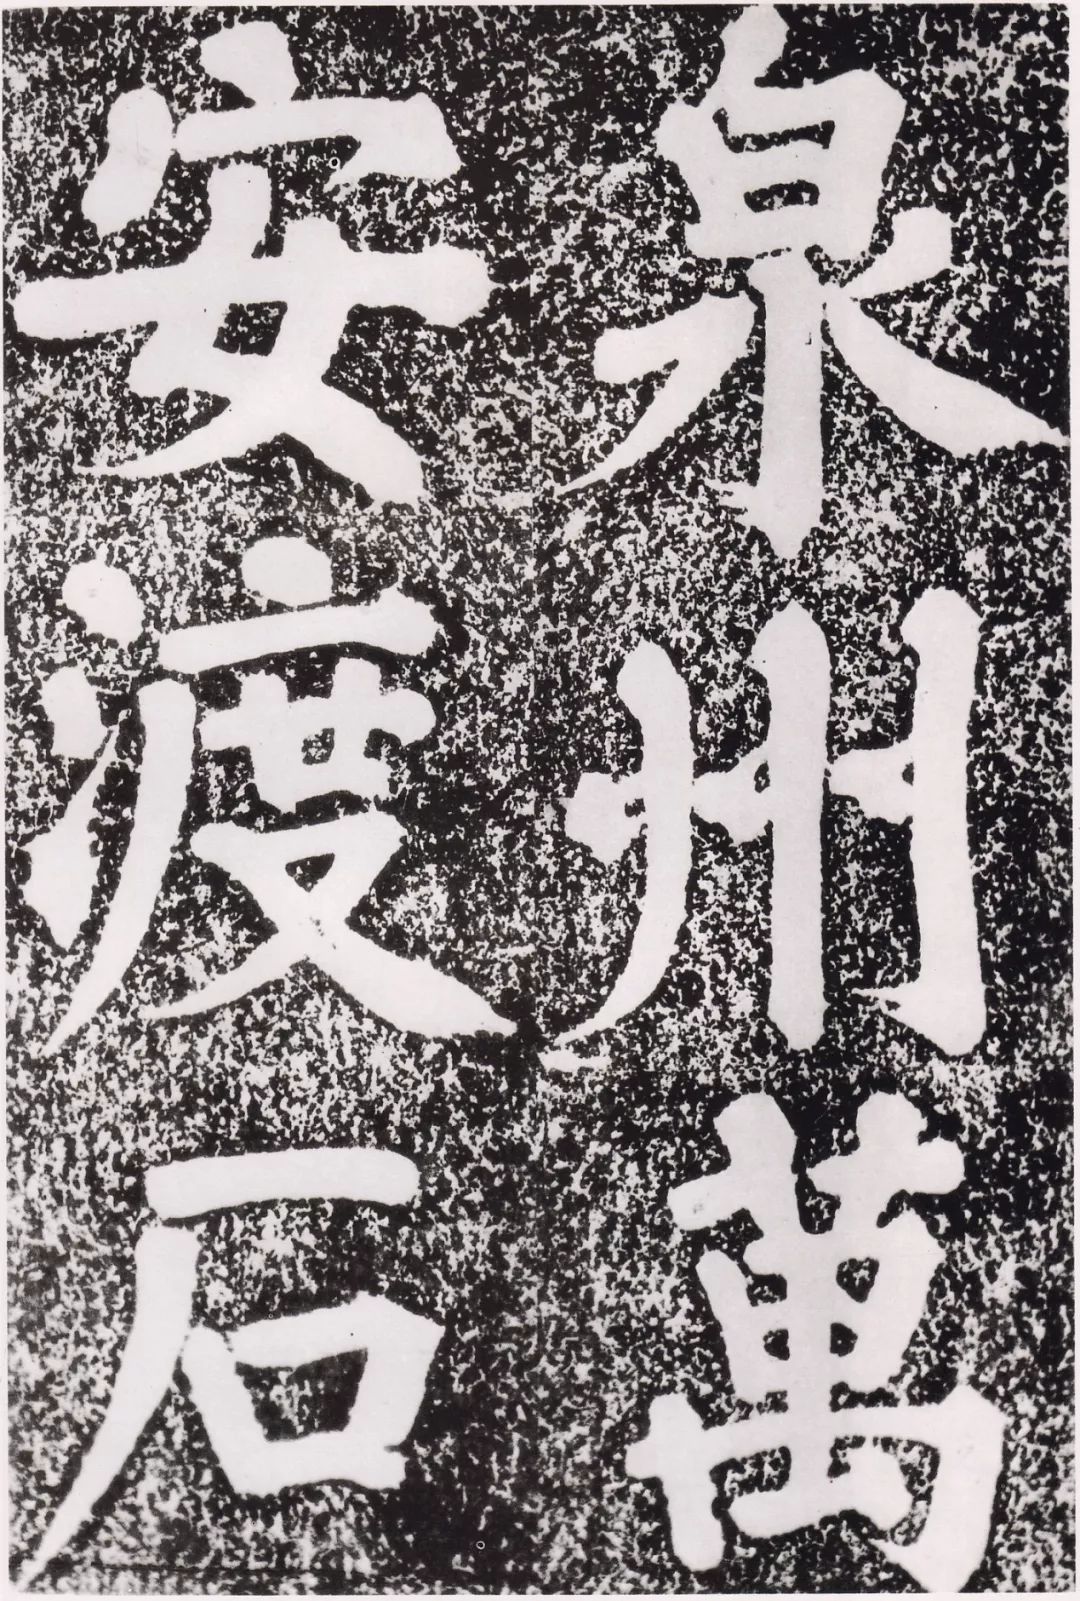 泉州萬
安渡石